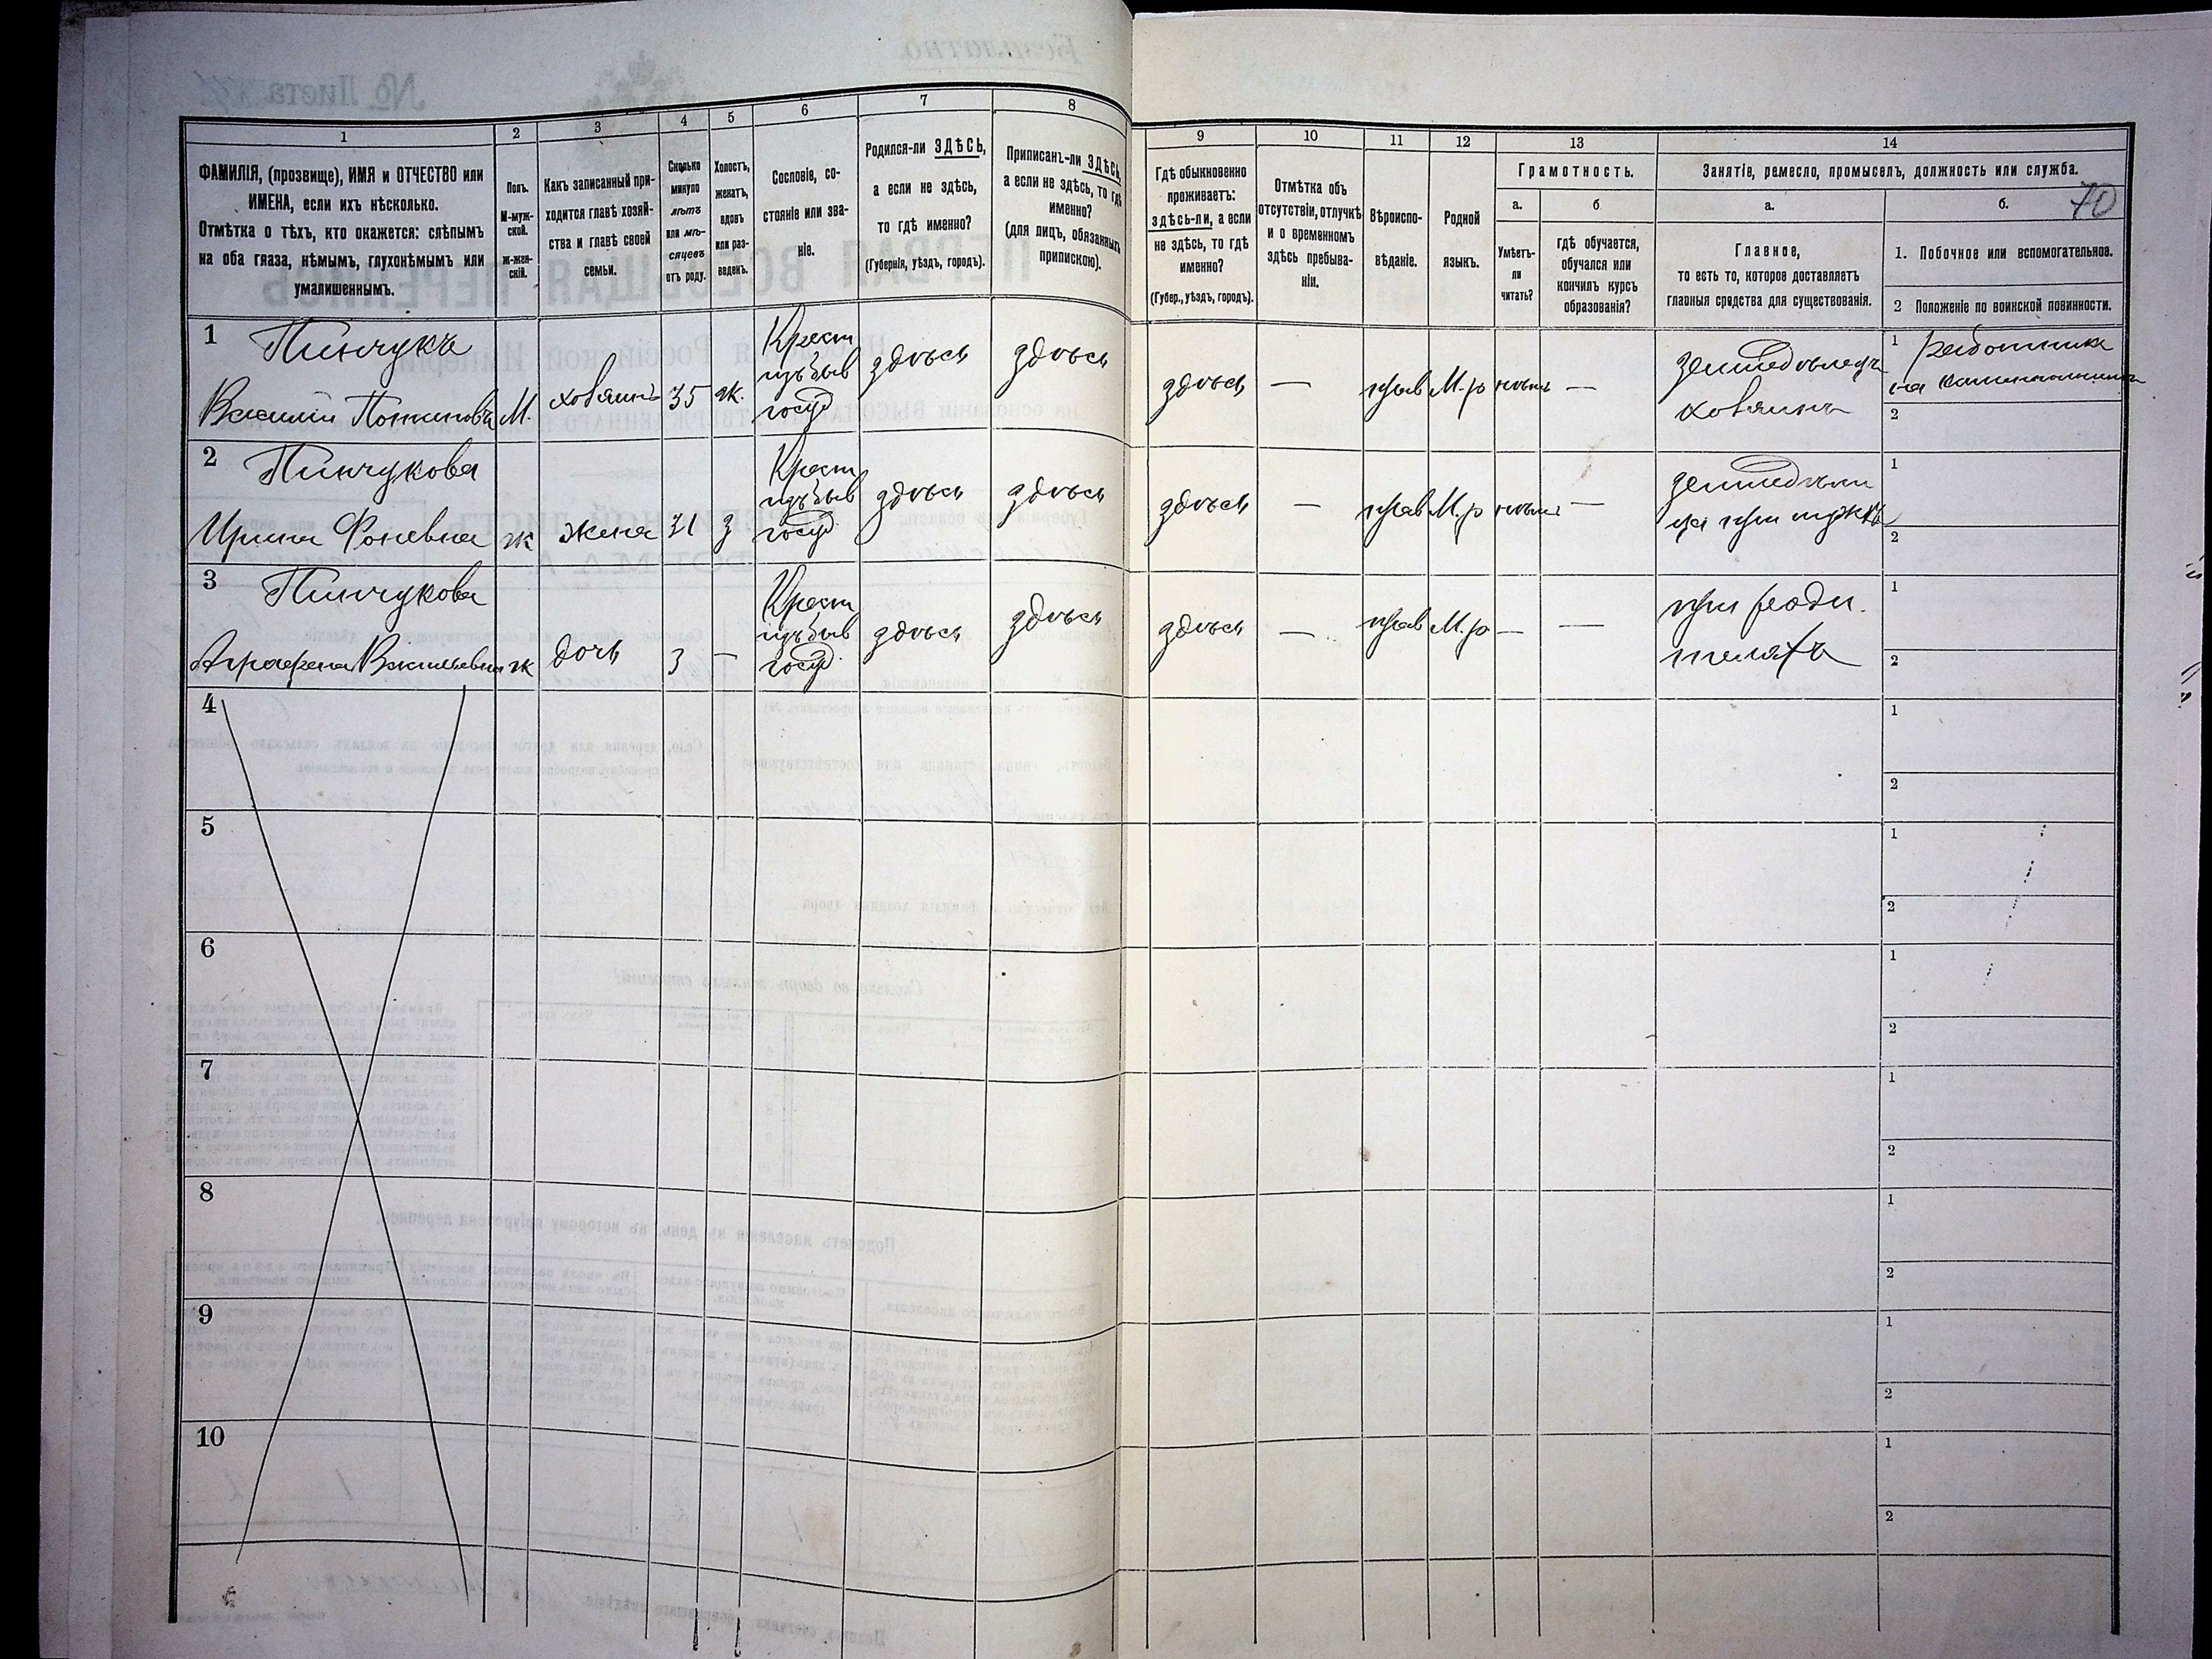 1 2 3 4 5 6 7 8 9 10 11 12 13 14
ФАМИЛІЯ, (прозвище), ИМЯ и ОТЧЕСТВО или
ИМЕНА, если ихъ нѣсколько.
Отмѣтка о тѣхъ, кто окажется: слѣпымъ
на оба глаза, нѣмымъ, глухонѣмымъ или
умалишеннымъ.
Полъ.
М-муж-
ской.
ж-жен-
скій.
Какъ записанный при-
ходится главѣ хозяй-
ства и главѣ своей
семьи.
Сколько
минуло
лѣтъ
или мѣ-
сяцевъ
отъ роду.
Холостъ,
женатъ,
вдовъ
или раз-
веденъ.
Сословіе, со-
стояніе или зва-
ніе.
Родился-ли ЗДѢСЬ,
а если не здѣсь,
то гдѣ именно?
(Губернія, уѣздъ, городъ).
Приписанъ-ли ЗДѢСЬ,
а если не здѣсь, то гдѣ
именно?
(для лицъ, обязанныхъ
припискою).
Гдѣ обыкновенно
проживаетъ:
здѣсь-ли, а если
не здѣсь, то гдѣ
именно?
(Губер., уѣздъ, городъ).
Отмѣтка объ
отсутствіи, отлучкѣ
и о временномъ
здѣсь пребыва-
ніи.
Вѣроиспо-
вѣданіе.
Родной
языкъ.
Грамотность.
а. б
Умѣетъ-
ли
читать?
гдѣ обучается,
обучался или
кончилъ курсъ
образованія?
Занятіе, ремесло, промыселъ, должность или служба.
а. б. 70
Главное,
то есть то, которое доставляетъ
главныя средства для существованія.
1. Побочное или вспомогательное.
2 Положеніе по воинской повинности.
1 Пинчукъ
Василій М. хозяинъ 35 ж.
Крест
изъ быв
госуд
здѣсь здѣсь здѣсь — прав М.р нѣтъ —
земледѣлецъ
хозяинъ
1 работникъ
на
2
2 Пинчукова
Ирина ж жена 31 з
Крест
изъ быв
госуд
здѣсь здѣсь здѣсь — прав М.р нѣтъ —
при мужѣ
1
2
3 Пинчукова
Аграфена Васильевна ж дочь 3 —
Крест
изъ быв
госуд
здѣсь здѣсь здѣсь — прав М.р — —
при роди.
теляхъ
1
2
4 1
2
5 1
2
6 1
2
7 1
2
8 1
2
9 1
2
10 1
2